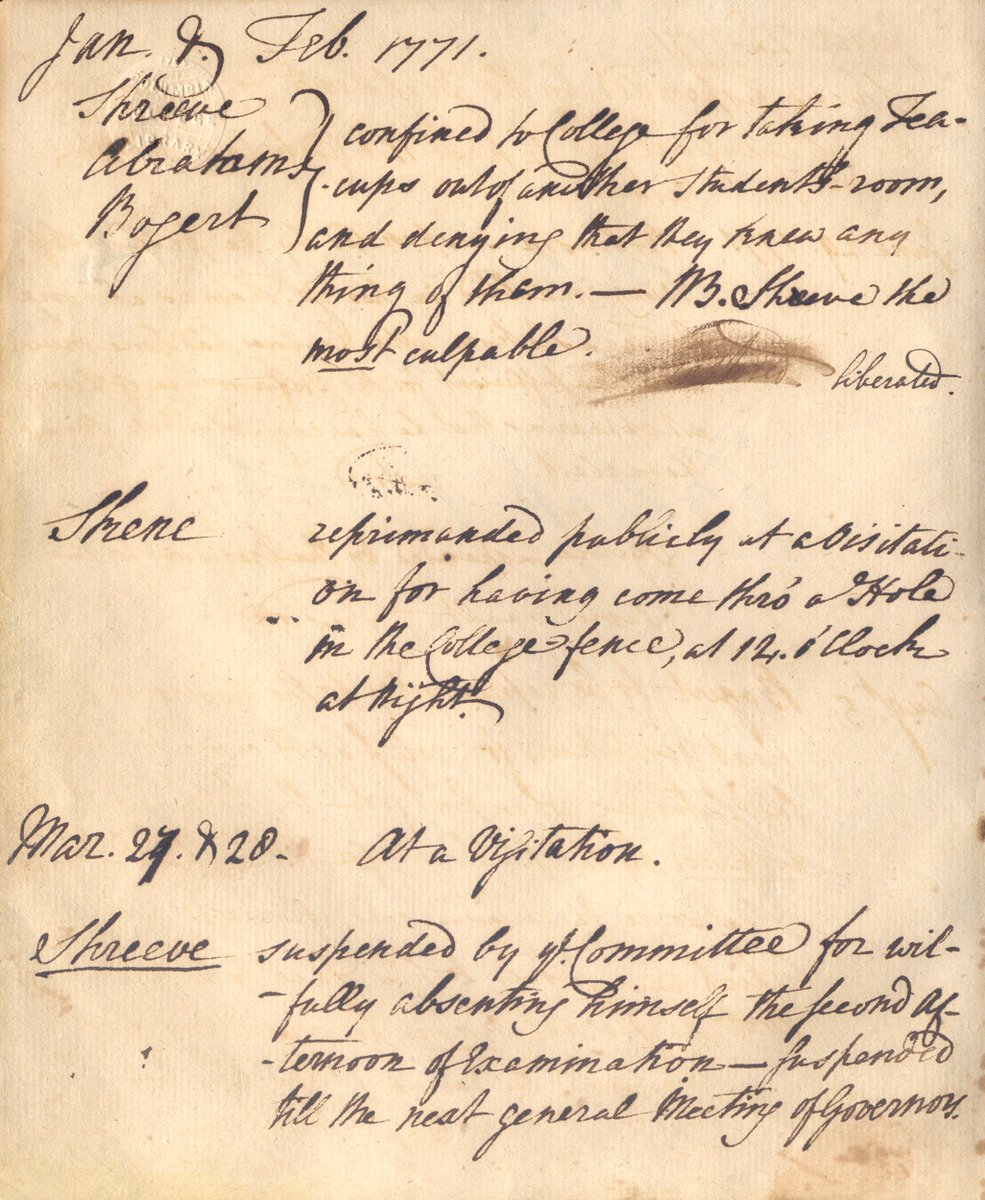 Jan. & Feb. 1771.
Shreeve
Abrahams
Bogert
confined to College for taking Tea-
-cups out of another student's-room,
and denying that they knew any
thing of them. — NB. Shreeve the
most culpable.
liberated.
Skene
reprimanded publicly at a Visitati-
on for having come thro' a Hole
in the College fence, at 12. o'Clock
at Night.
Mar. 27. & 28. - At a Visitation.
Shreeve suspended by ye. Committee for wil-
-fully absenting himself the second Af-
-ternoon of Examination — suspended
till the next general Meeting of Governors.